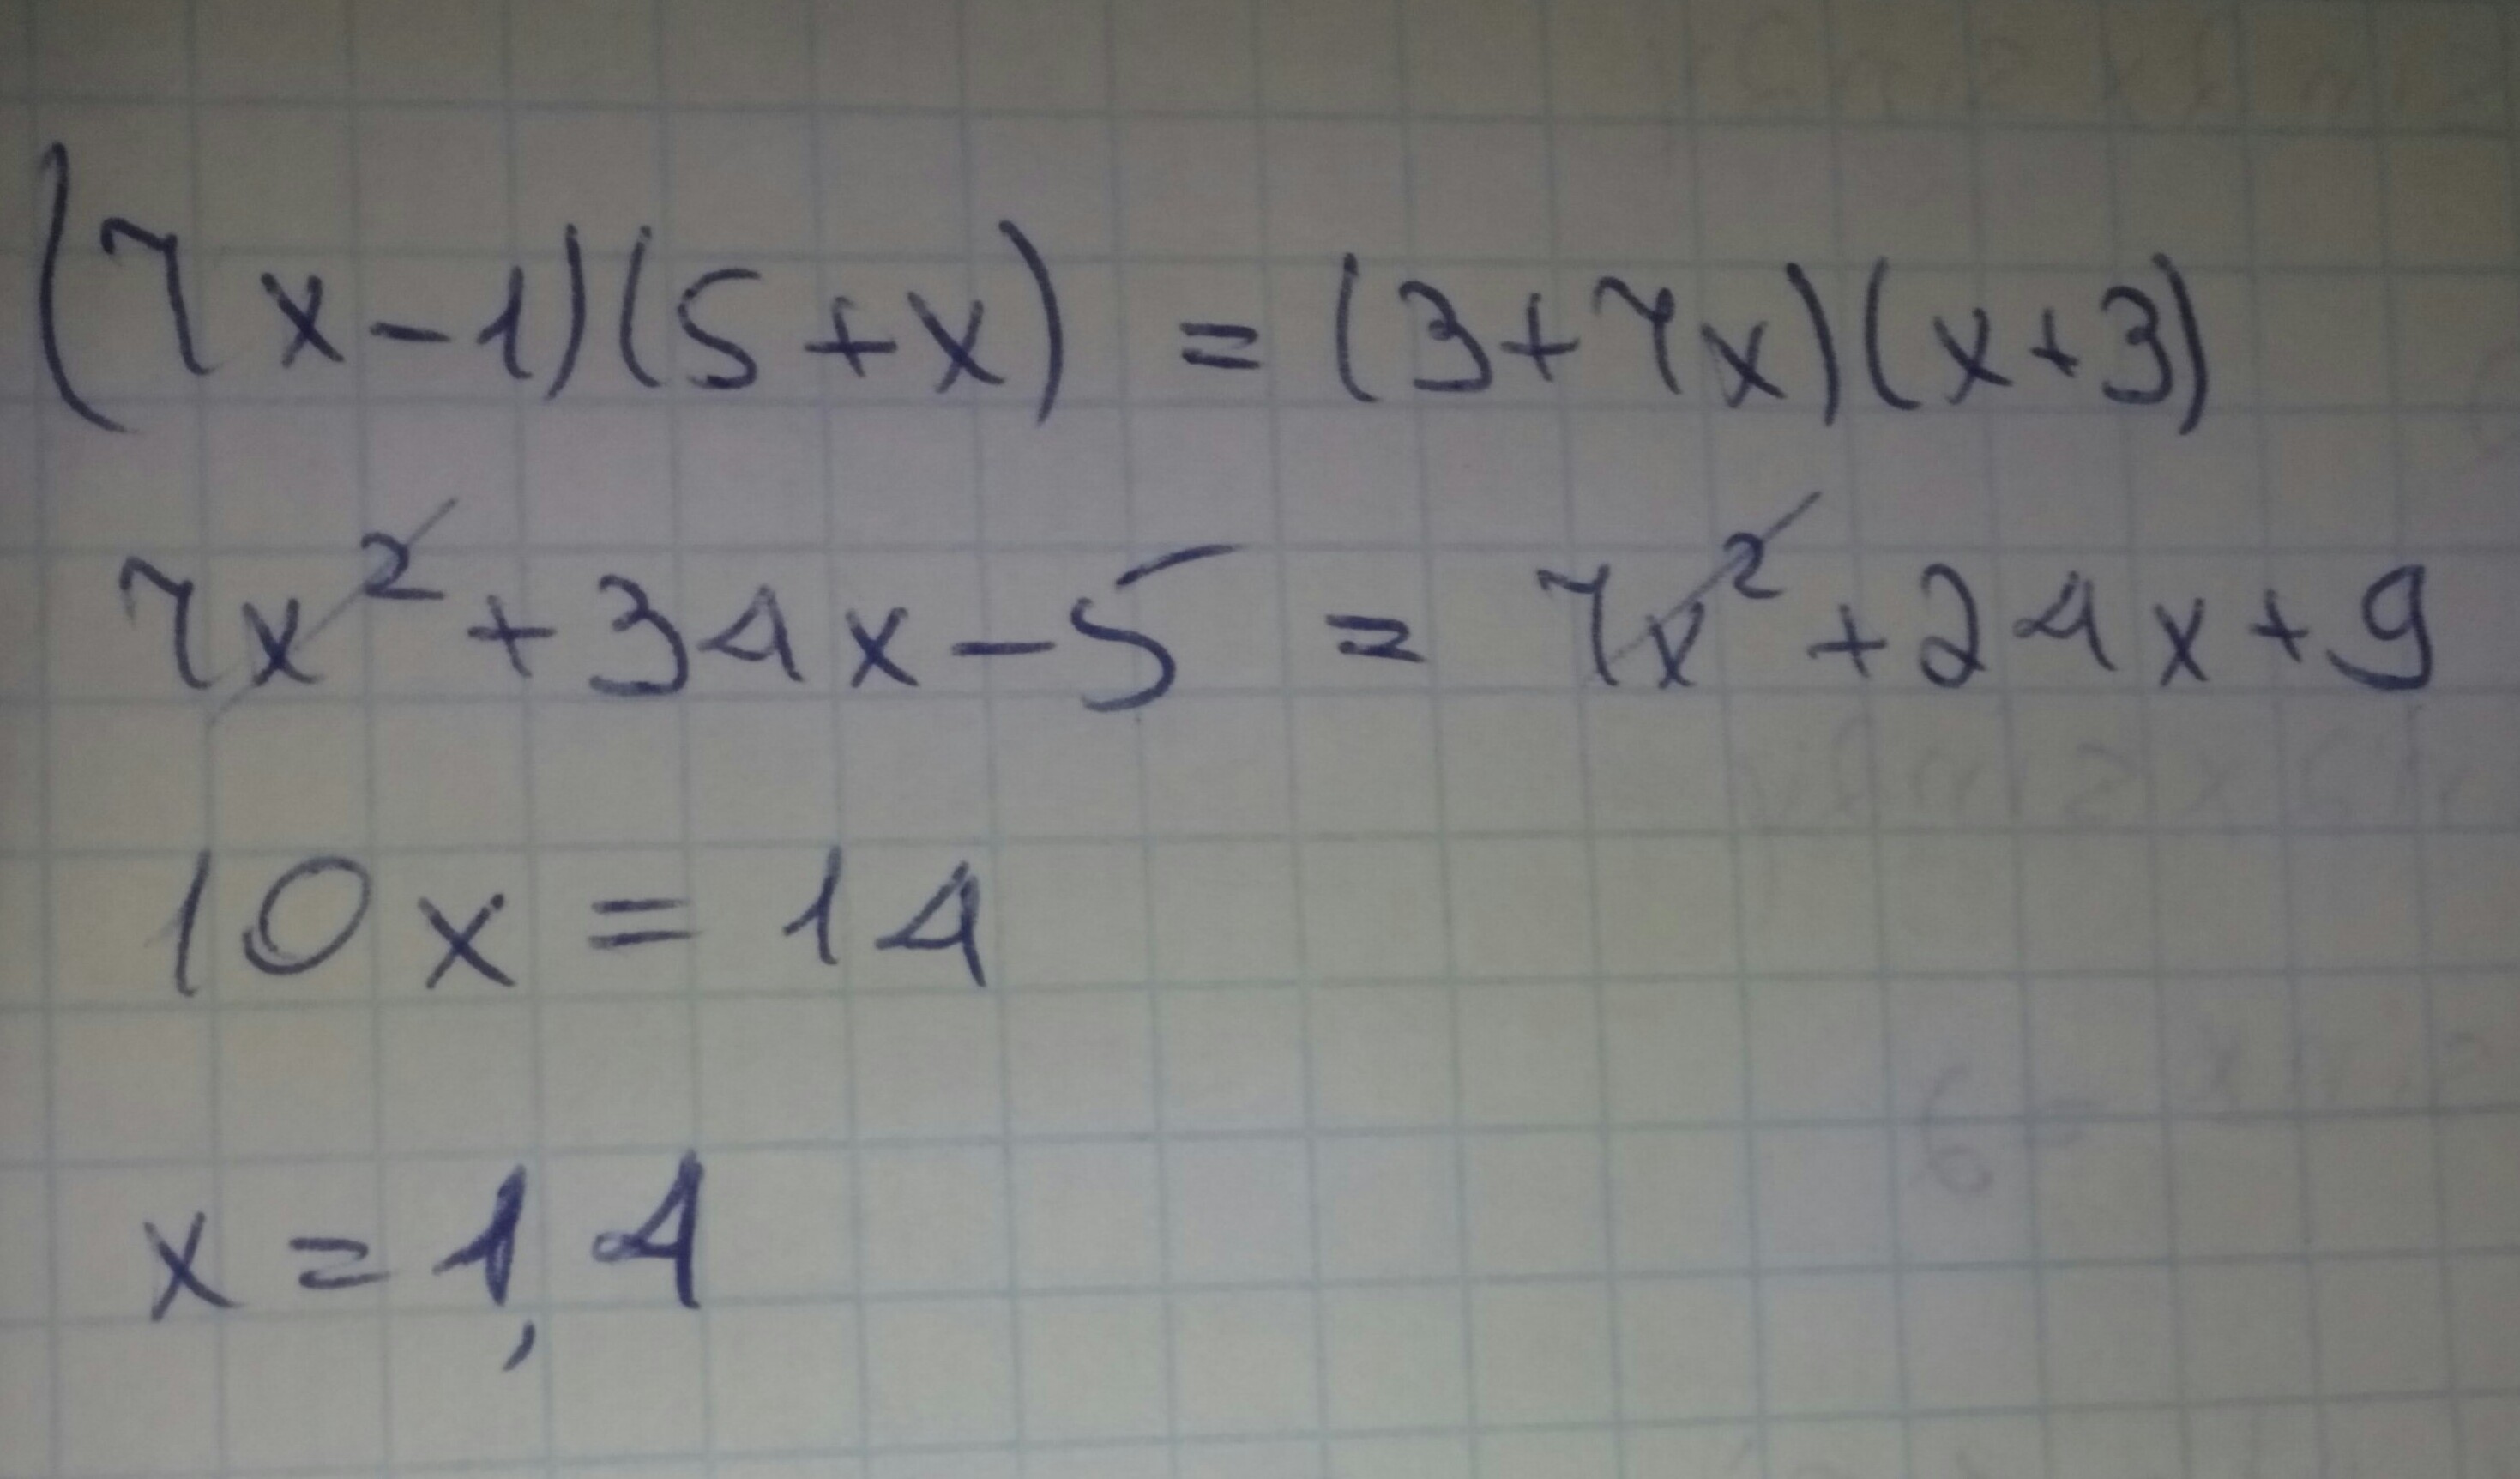 (7x-1)(5+x) = (3+7x)(x+3)
7x²+34x-5 = 7x²+24x+9
10x = 14
x = 1,4